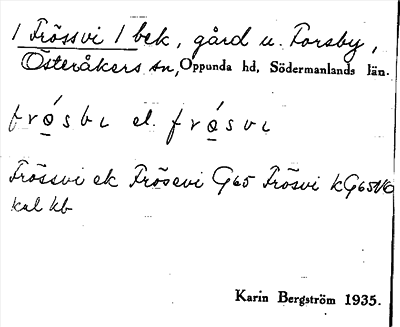 1 Frössvi / bek, gård u. Forsby,
Österåkers sn, Oppunda hd, Södermanlands län.
frǫ́sbɩ el. frǫ́svɩ
Frössvi ek Frösevi G65 Frösvi kG65
kal kb
Karin Bergström 1935.